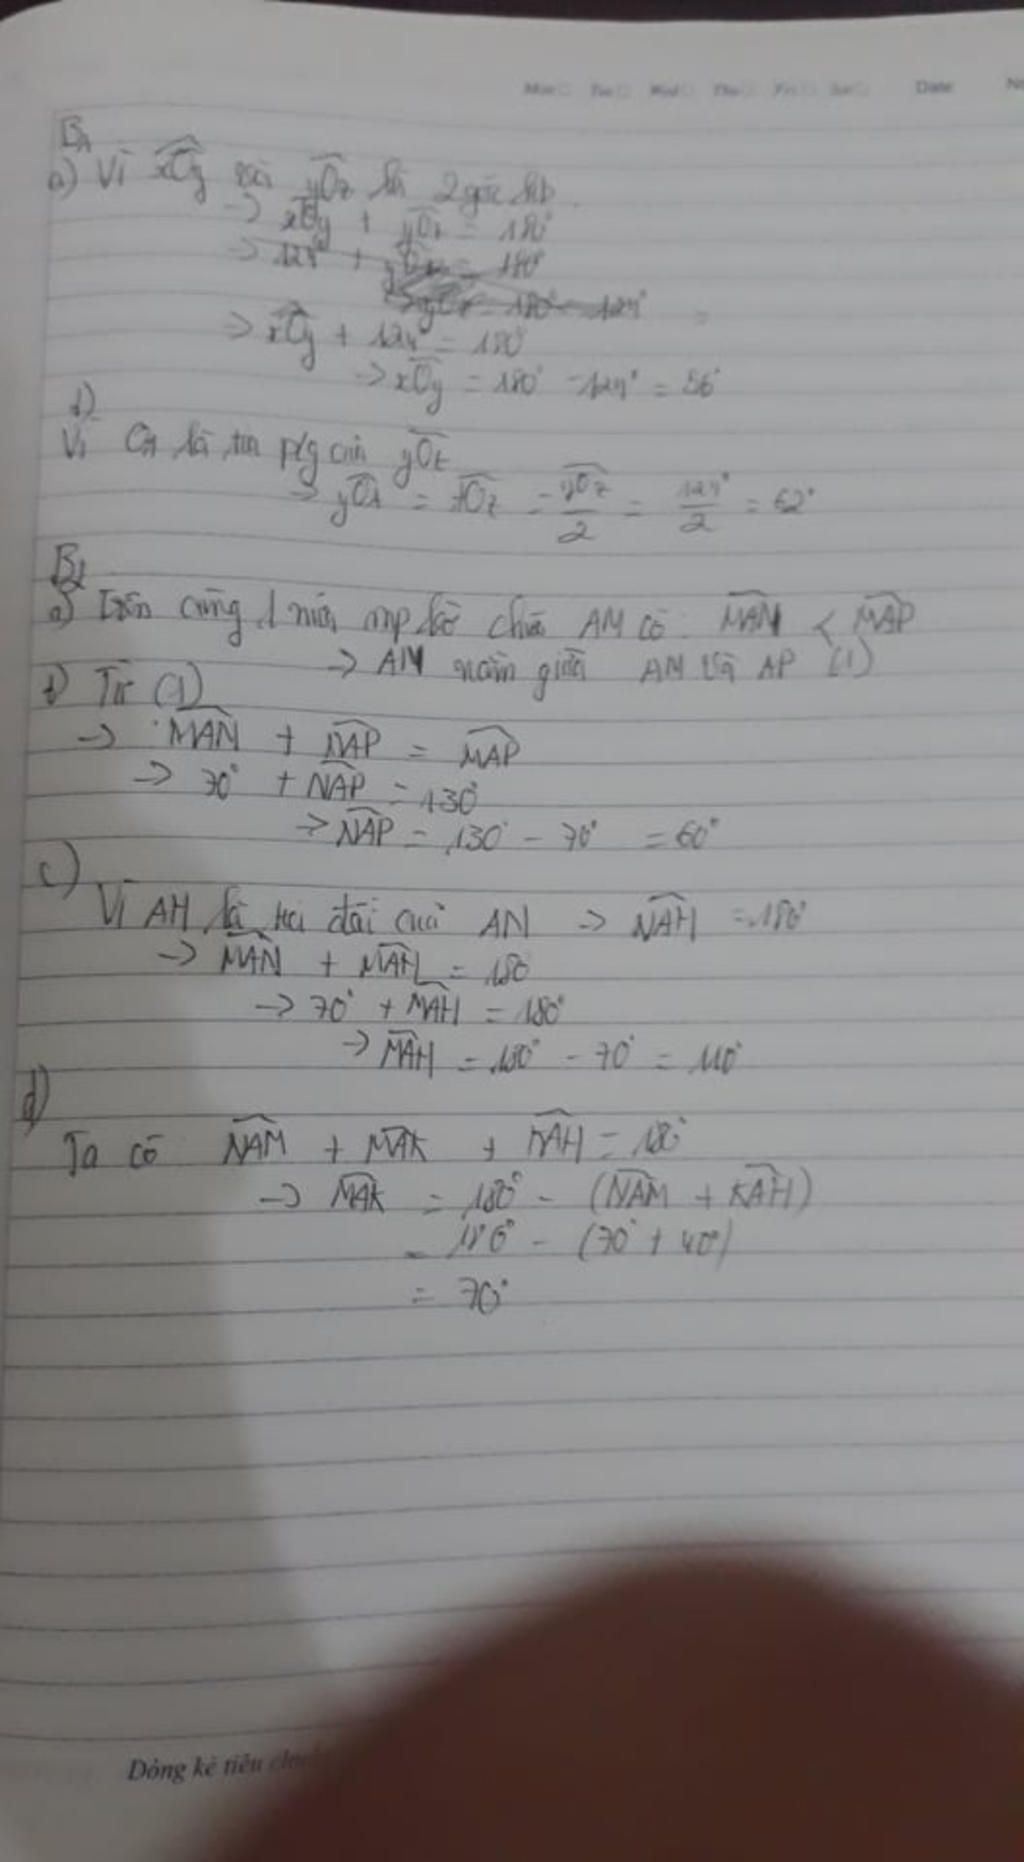 Mon Tue Wed Thu Fri Sat Date No
B1
a) Vì xOy và yOz là 2 góc kb
→ xOy + yOz = 180°
→ 124° + = 180°
180° - 124°
→ xOy + 124° = 180°
→ xOy = 180° - 124° = 56°
b)
Vì Ot là tia p/g của yOz
→ yOt = tOz = yOz/2 = 124°/2 = 62°
B2
a) Trên cùng 1 nửa mp bờ chứa AM có: MAN < MAP
→ AM nằm giữa AM và AP (1)
b) Từ (1)
→ MAN + NAP = MAP
→ 70° + NAP = 130°
→ NAP = 130° - 70° = 60°
c)
Vì AH là tia đối của AN → NAH = 180°
→ MAN + MAH = 180
→ 70° + MAH = 180°
→ MAH = 180° - 70° = 110°
d)
Ta có NAM + MAK + KAH = 180°
→ MAK = 180° - (NAM + KAH)
= 180° - (70° + 40°)
= 70°
Dòng kẻ tiêu